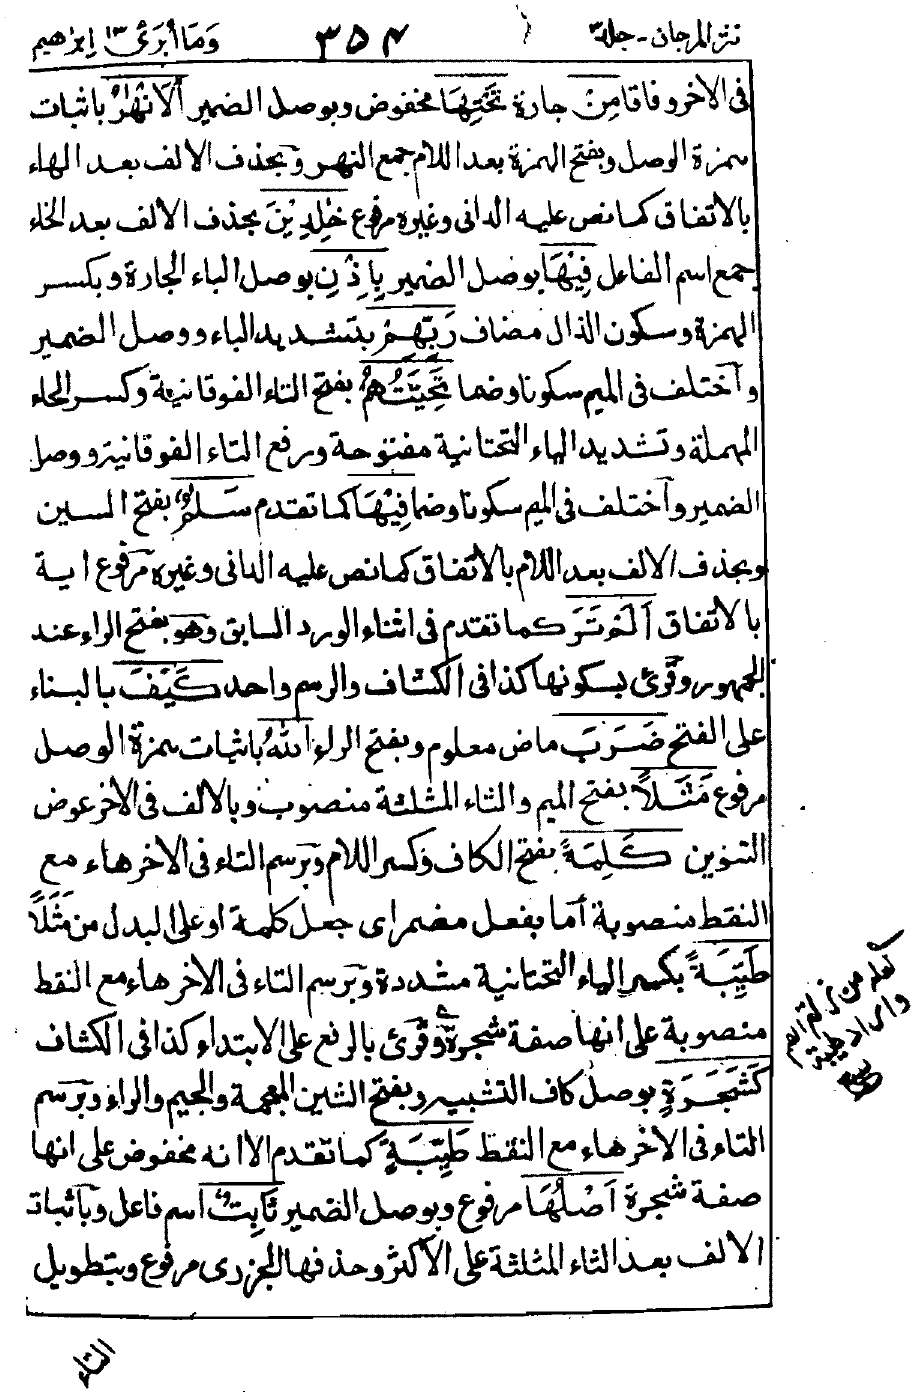 نثر المرجان - جلد٣ ٣٥٤ وَمَا أُبَرِّئُ ١٣ إبراهيم
فى الاخر وفاقا مِنْ جارة تَحْتِهَا مخفوض وبوصل الضمير اَلْاَنْهٰرُ باثبات
همزة الوصل وبفتح الهمزة بعد اللام جمع النهر وبحذف الالف بعد الهاء
بالاتفاق كما نص عليه الدانى وغيره مرفوع خٰلِدِيْنَ بحذف الالف بعد الخاء
جمع اسم الفاعل فِيْهَا بوصل الضمير بِاِذْنِ بوصل الباء الجارة وبكسر
الهمزة وسكون الذال مضاف رَبِّهِمْ بتشديد الباء ووصل الضمير
واختلف فى الميم سكونا وضما تَحِيَّتُهُمْ بفتح التاء الفوقانية وكسر الحاء
المهملة وتشديد الياء التحتانية مفتوحة ورفع التاء الفوقانية ووصل
الضمير واختلف فى الميم سكونا وضما فِيْهَا كما تقدم سَلٰمٌ بفتح السين
وبحذف الالف بعد اللام بالاتفاق كما نص عليه الدانى وغيره مرفوع اية
بالاتفاق اَلَمْ تَرَ كما تقدم فى اثناء الورد السابق وهو بفتح الراء عند
الجمهور وقُرئ بسكونها كذا فى الكشاف والرسم واحد كَيْفَ بالبناء
على الفتح ضَرَبَ ماض معلوم وبفتح الراء اللهُ باثبات همزة الوصل
مرفوع مَثَلًا بفتح الميم والثاء المثلثة منصوب وبالالف فى الاخر عوض
التنوين كَلِمَةً بفتح الكاف وكسر اللام وبرسم التاء فى الاخر هاء مع
النقط منصوبة أما بفعل مضمر اى جعل كلمة او على البدل من مَثَلًا
طَيِّبَةً بكسر الياء التحتانية مشددة وبرسم التاء فى الاخر هاء مع النقط
منصوبة على انها صفة شجرة وقُرئ بالرفع على الابتداء كذا فى الكشاف
كَشَجَرَةٍ بوصل كاف التشبيه وبفتح الشين المعجمة والجيم والراء وبرسم
التاء فى الاخر هاء مع النقط طَيِّبَةٍ كما تقدم الا انه مخفوض على انها
صفة شجرة اَصْلُهَا مرفوع وبوصل الضمير ثَابِتٌ اسم فاعل وباثبات
الالف بعد الثاء المثلثة على الأكثر وحذفها الجزرى مرفوع وبتطويل
التاء
لعله من